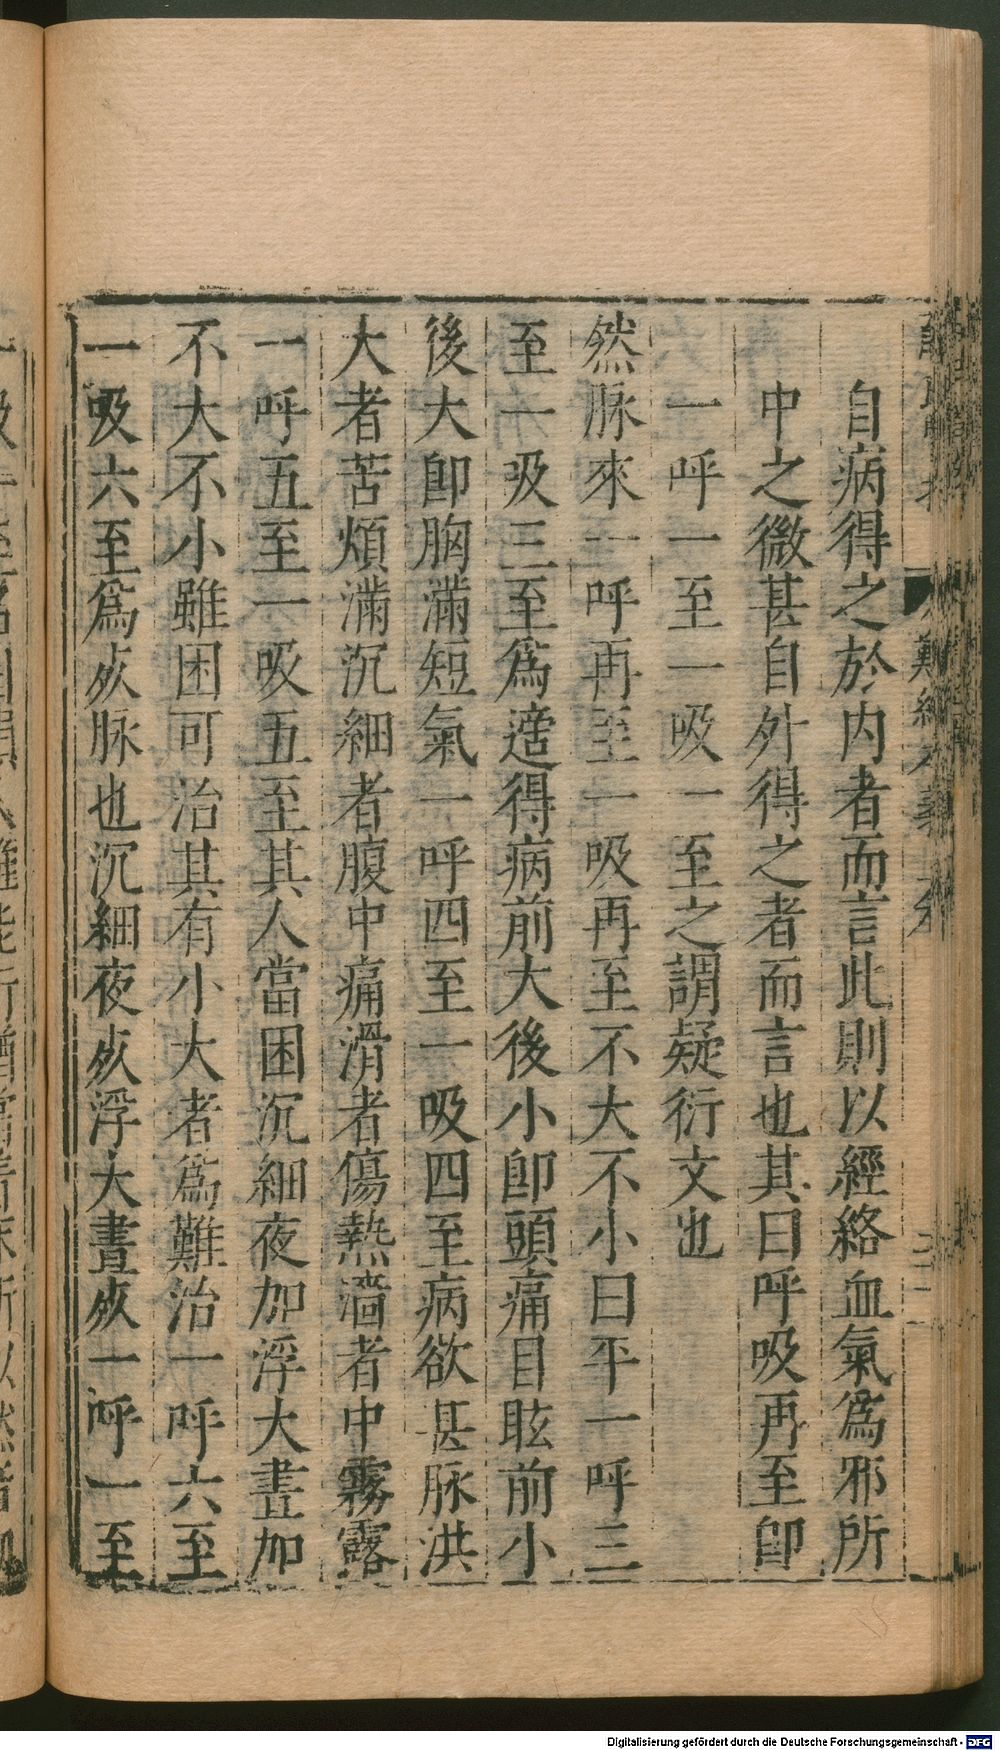 自病得之於内者而言此則以經絡血氣爲邪所
中之微甚自外得之者而言也其曰呼吸再至卽
一呼一至一吸一至之謂疑衍文也
然脉來一呼再至一吸再至不大不小曰平一呼三
至一吸三至爲適得病前大後小卽頭痛目眩前小
後大卽胸滿短氣一呼四至一吸四至病欲甚脉洪
大者苦煩滿沉細者腹中痛滑者傷熱濇者中霧露
一呼五至一吸五至其人當困沉細夜加浮大晝加
不大不小雖困可治其有小大者爲難治一呼六至
一吸六至爲𣦸脉也沉細夜𣦸浮大晝𣦸一呼一至
Digitalisierung gefördert durch die Deutsche Forschungsgemeinschaft - DFG